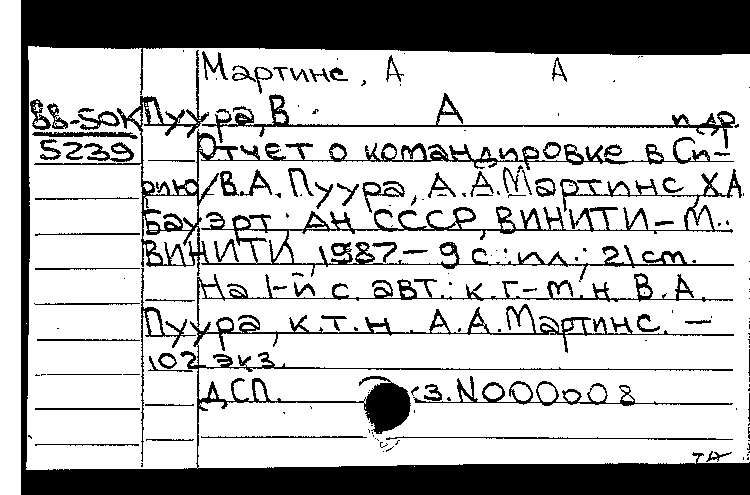 Мартинс, А А
88-50К Пуура, В. А и др
5239 Отчет о командировке в Си-
рию/В.А. Пуура, А.А.Мартинс, Х.А
Бауэрт; АН СССР, ВИНИТИ.- М.:
ВИНИТИ, 1987.- 9 с.: ил.; 21 см.
На 1-й с. авт.: к.г.-м.н. В.А.
Пуура, к.т.н. А.А.Мартинс. –
102 экз.
ДСП. кз.N000008